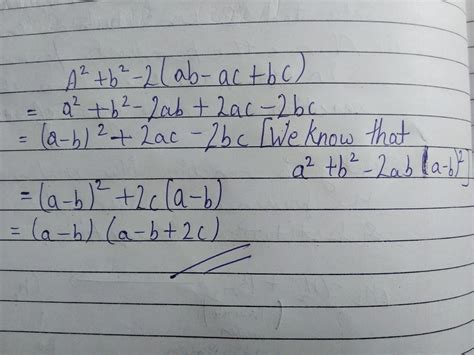 A² + b² - 2(ab - ac + bc)
= a² + b² - 2ab + 2ac - 2bc
= (a-b)² + 2ac - 2bc [We know that
a² + b² - 2ab (a-b)²]
= (a-b)² + 2c(a-b)
= (a-b) (a-b+2c)